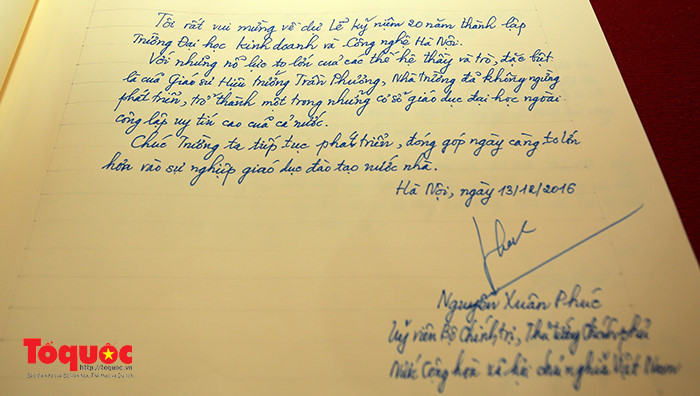 Tôi rất vui mừng về dự Lễ kỷ niệm 20 năm thành lập
Trường Đại học kinh doanh và Công nghệ Hà Nội.
Với những nỗ lực to lớn của các thế hệ thầy và trò, đặc biệt
là của Giáo sư Hiệu trưởng Trần Phương, Nhà trường đã không ngừng
phát triển, trở thành một trong những cơ sở giáo dục đại học ngoài
công lập uy tín cao của cả nước.
Chúc Trường ta tiếp tục phát triển, đóng góp ngày càng to lớn
hơn vào sự nghiệp giáo dục đào tạo nước nhà.
Hà Nội, ngày 13/12/2016
Nguyễn Xuân Phúc
Uỷ viên Bộ Chính trị, Thủ tướng Chính phủ
Nước Cộng hoà xã hội chủ nghĩa Việt Nam
Tổquốc
http://toquoc.vn